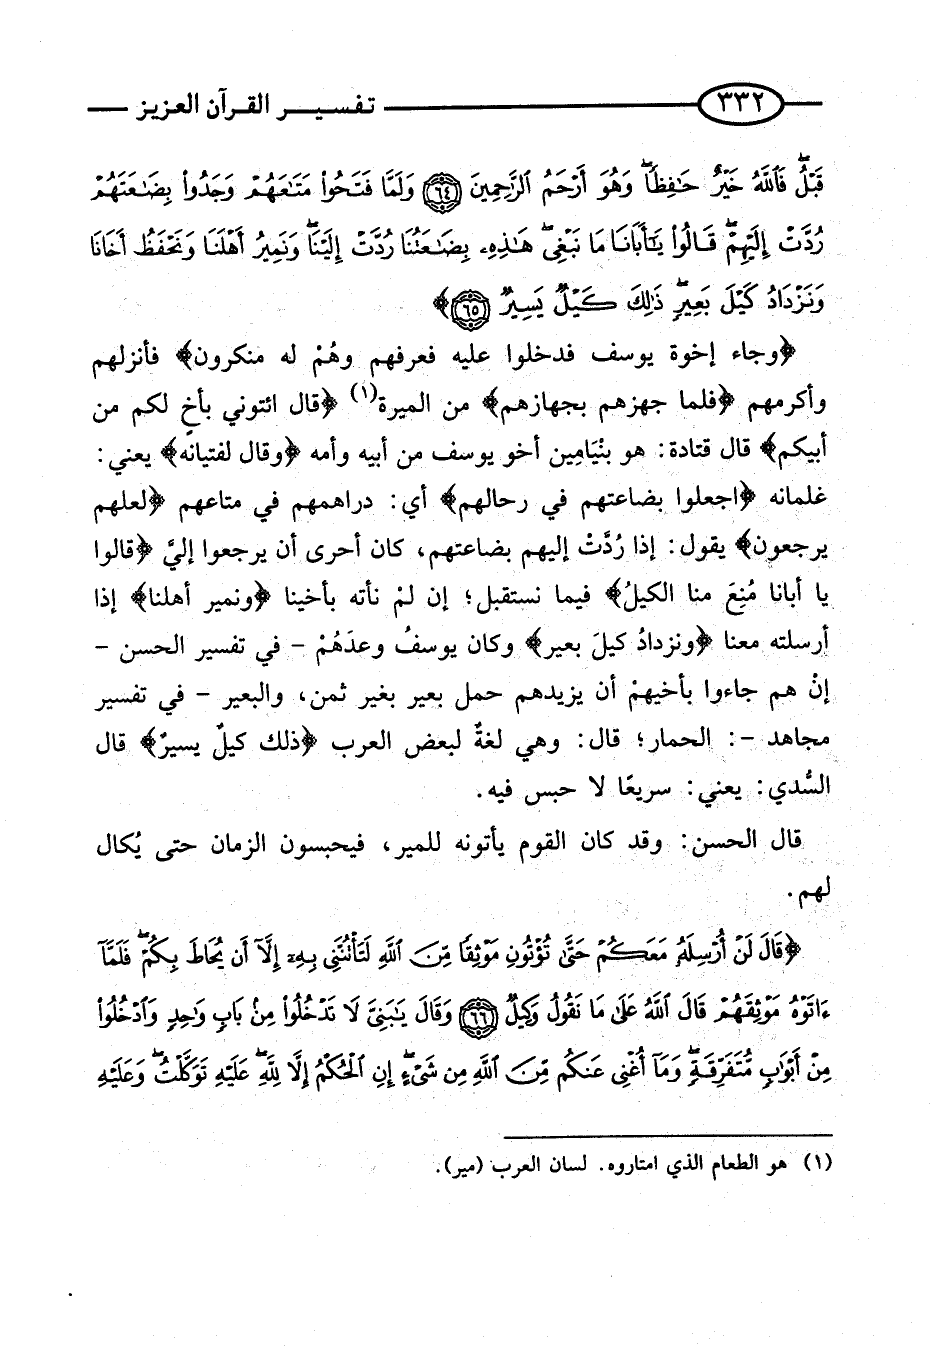 ٣٣٢ تفسير القرآن العزيز
قَبْلُ فَٱللَّهُ خَيْرٌ حَٰفِظًا وَهُوَ أَرْحَمُ ٱلرَّٰحِمِينَ ٦٤ وَلَمَّا فَتَحُوا۟ مَتَٰعَهُمْ وَجَدُوا۟ بِضَٰعَتَهُمْ
رُدَّتْ إِلَيْهِمْ قَالُوا۟ يَٰٓأَبَانَا مَا نَبْغِى هَٰذِهِۦ بِضَٰعَتُنَا رُدَّتْ إِلَيْنَا وَنَمِيرُ أَهْلَنَا وَنَحْفَظُ أَخَانَا
وَنَزْدَادُ كَيْلَ بَعِيرٍ ذَٰلِكَ كَيْلٌ يَسِيرٌ ٦٥﴾
﴿وجاء إخوة يوسف فدخلوا عليه فعرفهم وهُمْ له منكرون﴾ فأنزلهم
وأكرمهم ﴿فلما جهزهم بجهازهم﴾ من الميرة(١) ﴿قال ائتوني بأخٍ لكم من
أبيكم﴾ قال قتادة: هو بنْيَامِين أخو يوسف من أبيه وأمه ﴿وقال لفتيانه﴾ يعني:
غلمانه ﴿اجعلوا بضاعتهم في رحالهم﴾ أي: دراهمهم في متاعهم ﴿لعلهم
يرجعون﴾ يقول: إذا رُدَّتْ إليهم بضاعتهم، كان أحرى أن يرجعوا إليَّ ﴿قالوا
يا أبانا مُنِعَ منا الكيلُ﴾ فيما نستقبل؛ إن لمْ نأته بأخينا ﴿ونمير أهلنا﴾ إذا
أرسلته معنا ﴿ونزدادُ كيلَ بعير﴾ وكان يوسفُ وعدَهُمْ - في تفسير الحسن -
إنْ هم جاءوا بأخيهمْ أن يزيدهم حمل بعير بغير ثمن، والبعير - في تفسير
مجاهد -: الحمار؛ قال: وهي لغةٌ لبعض العرب ﴿ذلك كيلٌ يسيرٌ﴾ قال
السُّدي: يعني: سريعًا لا حبس فيه.
قال الحسن: وقد كان القوم يأتونه للمير، فيحبسون الزمان حتى يُكال
لهم.
﴿قَالَ لَنْ أُرْسِلَهُۥ مَعَكُمْ حَتَّىٰ تُؤْتُونِ مَوْثِقًا مِّنَ ٱللَّهِ لَتَأْتُنَّنِى بِهِۦٓ إِلَّآ أَن يُحَاطَ بِكُمْ فَلَمَّآ
ءَاتَوْهُ مَوْثِقَهُمْ قَالَ ٱللَّهُ عَلَىٰ مَا نَقُولُ وَكِيلٌ ٦٦ وَقَالَ يَٰبَنِىَّ لَا تَدْخُلُوا۟ مِنۢ بَابٍ وَٰحِدٍ وَٱدْخُلُوا۟
مِنْ أَبْوَٰبٍ مُّتَفَرِّقَةٍ وَمَآ أُغْنِى عَنكُم مِّنَ ٱللَّهِ مِن شَىْءٍ إِنِ ٱلْحُكْمُ إِلَّا لِلَّهِ عَلَيْهِ تَوَكَّلْتُ وَعَلَيْهِ
(١) هو الطعام الذي امتاروه. لسان العرب (مير).